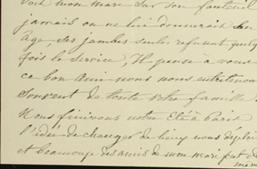 voit mon mari sur son fauteuil
jamais on ne lui donnerait son
âge, ses jambes seules refusent quelque
fois le service. Il pense à vous
ce bon ami nous nous
souvent de toute votre famille
Nous finirons notre été à Paris
l'idée de changer de lieux nous déplaît
et beaucoup des amis de mon mari